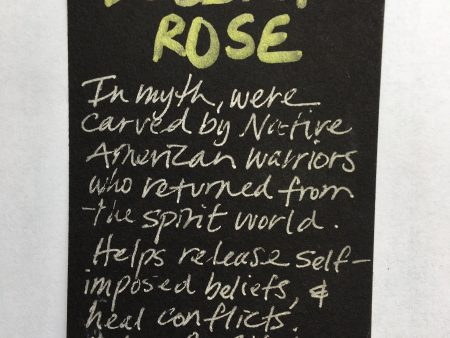 ROSE
In myth, were
carved by Native
American warriors
who returned from
the spirit world.
Helps release self-
imposed beliefs, &
heal conflicts.